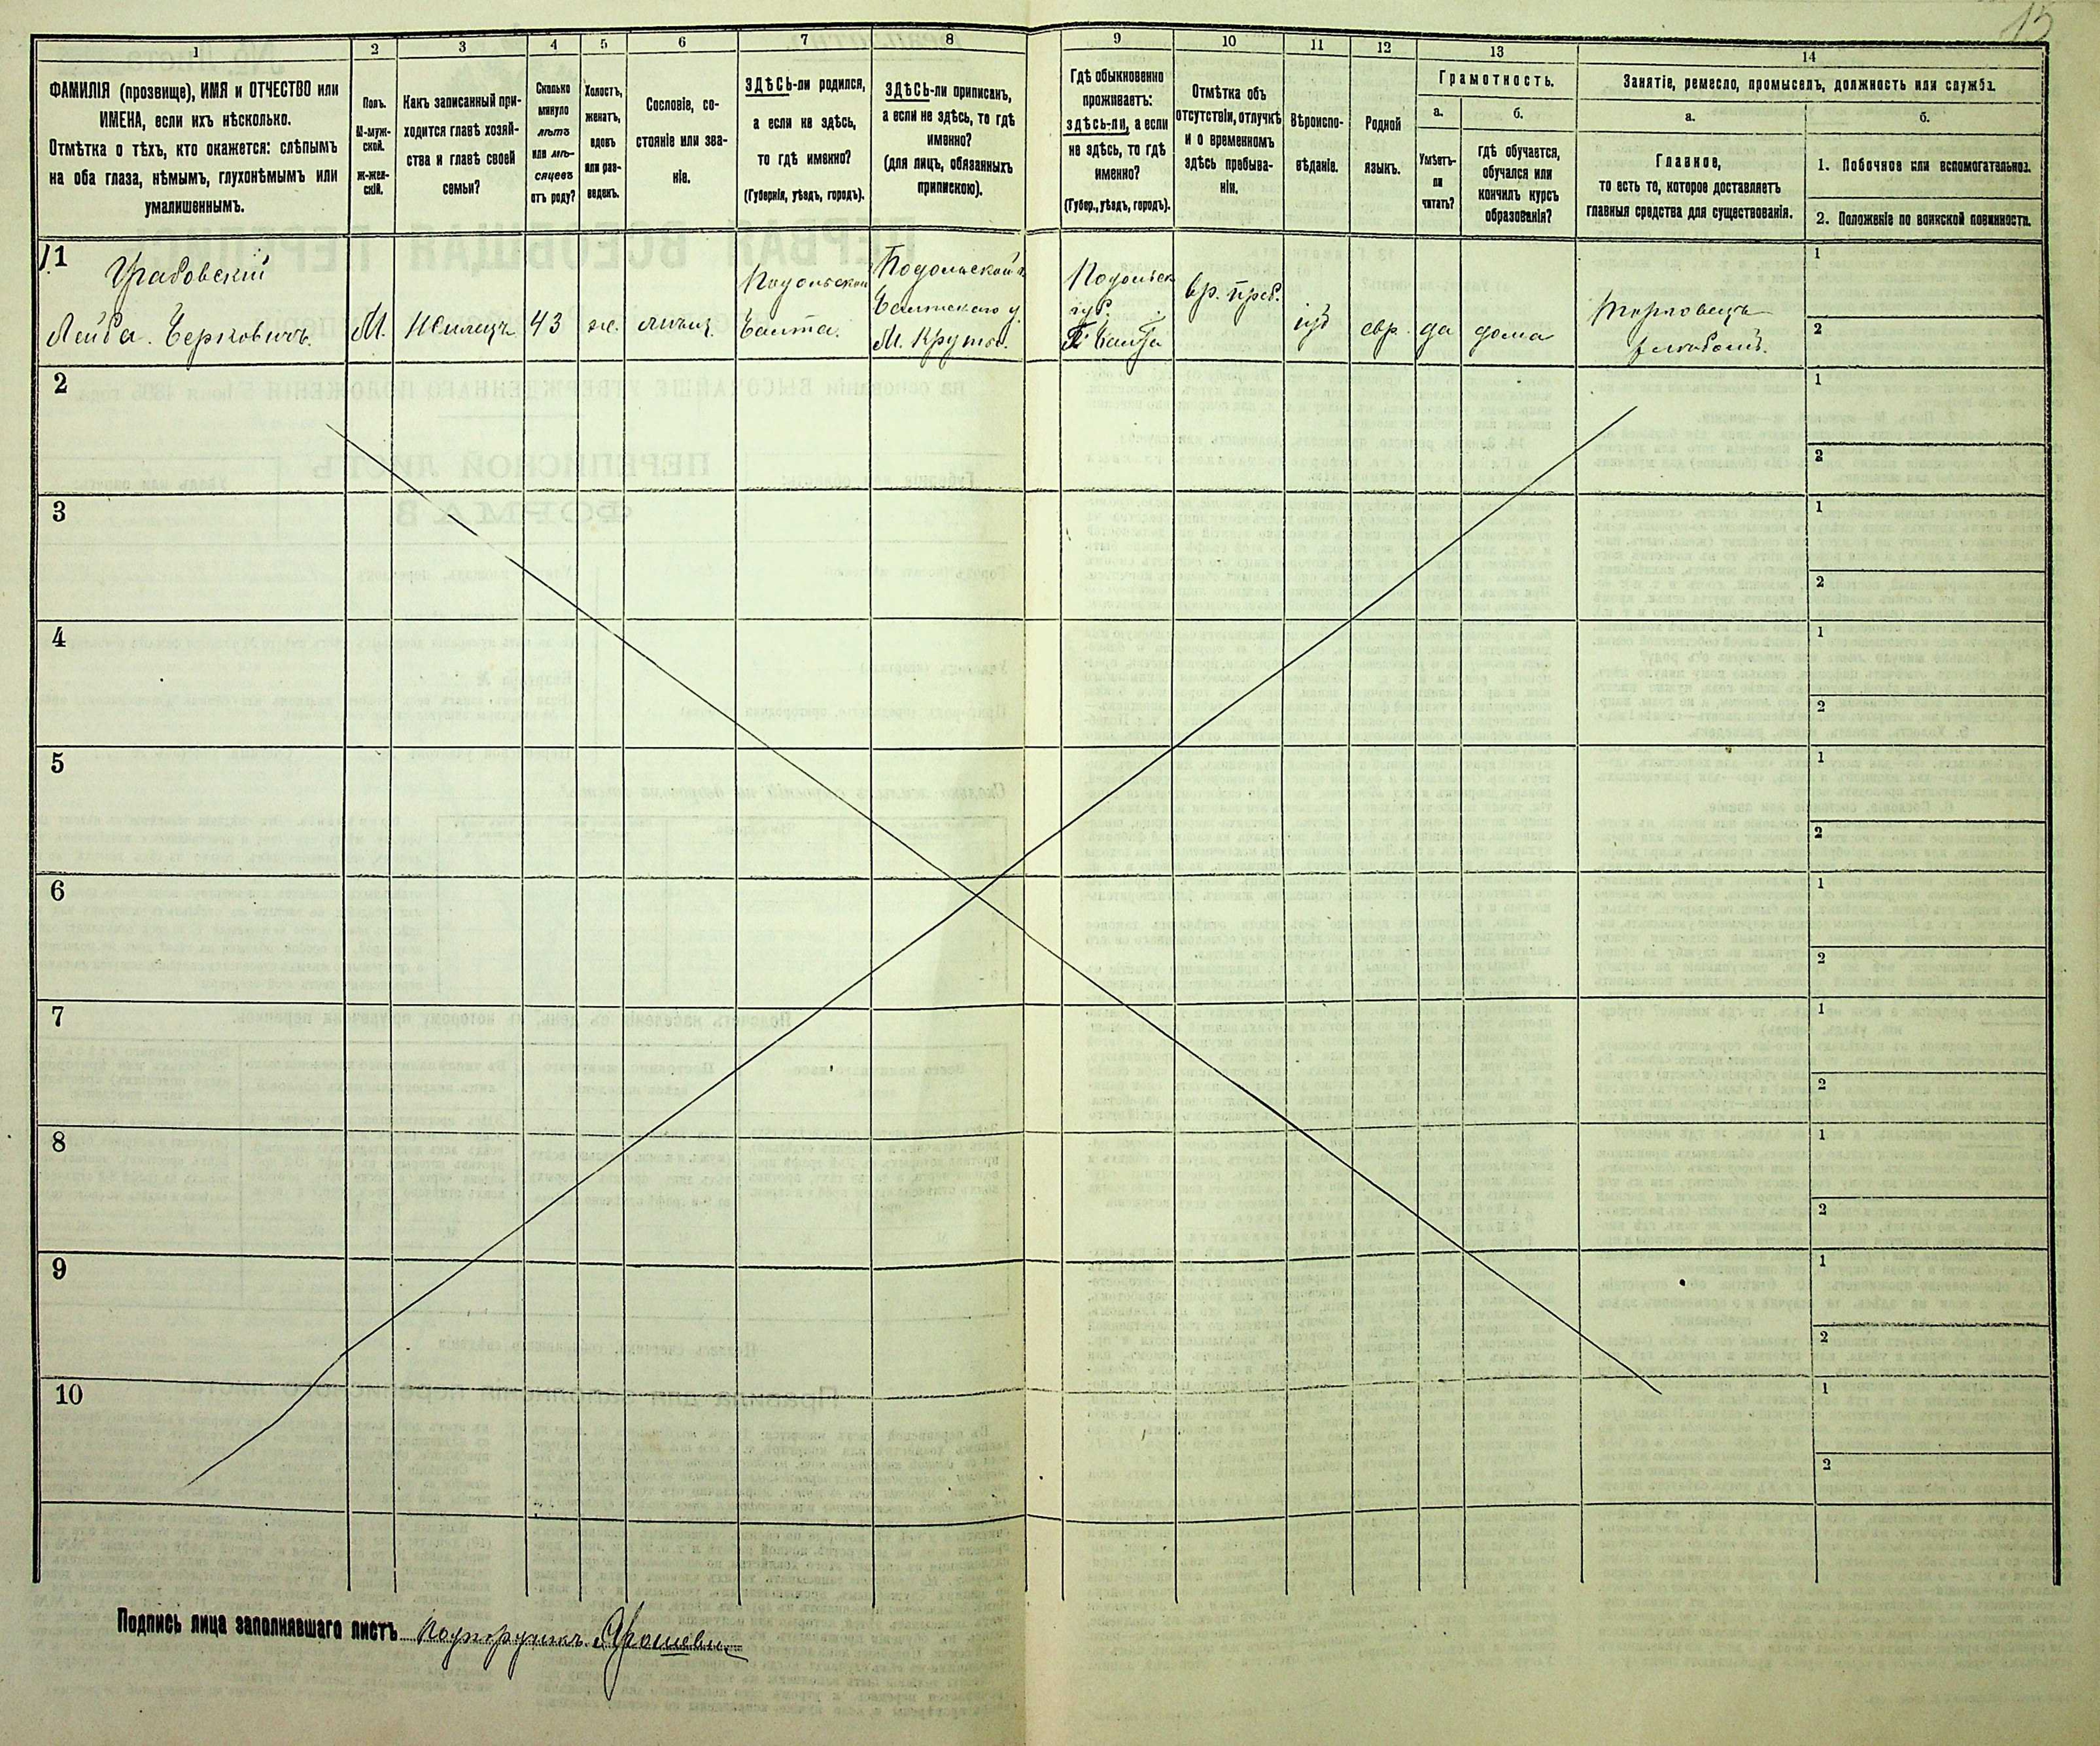 15
1
2
3
4
5
6
7
8
9
10
11
12
13
14
ФАМИЛІЯ (прозвище), ИМЯ и ОТЧЕСТВО или
ИМЕНА, если ихъ нѣсколько.
Отмѣтка о тѣхъ, кто окажется: слѣпымъ
на оба глаза, нѣмымъ, глухонѣмымъ или
умалишеннымъ.
Полъ.
М-муж-
ской.
Ж-жен-
скій.
Какъ записанный при-
ходится главѣ хозяй-
ства и главѣ своей
семьи?
Сколько
минуло
лѣтъ
или мѣ-
сяцевъ
отъ роду?
Холостъ,
женатъ,
вдовъ
или раз-
веденъ.
Сословіе, со-
стояніе или зва-
ніе.
ЗДѢСЬ-ли родился,
а если не здѣсь,
то гдѣ именно?
(Губернія, уѣздъ, городъ).
ЗДѢСЬ-ли приписанъ,
а если не здѣсь, то гдѣ
именно?
(для лицъ, обязанныхъ
припискою).
Гдѣ обыкновенно
проживаетъ:
здѣсь-ли, а если
не здѣсь, то гдѣ
именно?
(Губер., уѣздъ, городъ).
Отмѣтка объ
отсутствіи, отлучкѣ
и о временномъ
здѣсь пребыва-
ніи.
Вѣроиспо-
вѣданіе.
Родной
языкъ.
Грамотность.
а.
Умѣетъ-
ли
читать?
б.
гдѣ обучается,
обучался или
кончилъ курсъ
образованія?
Занятіе, ремесло, промыселъ, должность или служба.
а.
Главное,
то есть то, которое доставляетъ
главныя средства для существованія.
б.
1. Побочное или вспомогательное.
2. Положеніе по воинской повинности.
1
Грабовскій
Лейба Берковичъ.
М.
Жилецъ
43
ж.
мѣщ.
Подольской
Балта.
Подольской г.
Балтскаго у.
М. Круты.
Подольск
губ.
Г. Балта
вр. преб.
іуд
евр.
да
дома
Торговецъ
хлѣбомъ.
1
2
2
1
2
3
1
2
4
1
2
5
1
2
6
1
2
7
1
2
8
1
2
9
1
2
10
1
2
Подпись лица заполнявшаго листъ Подпоручикъ